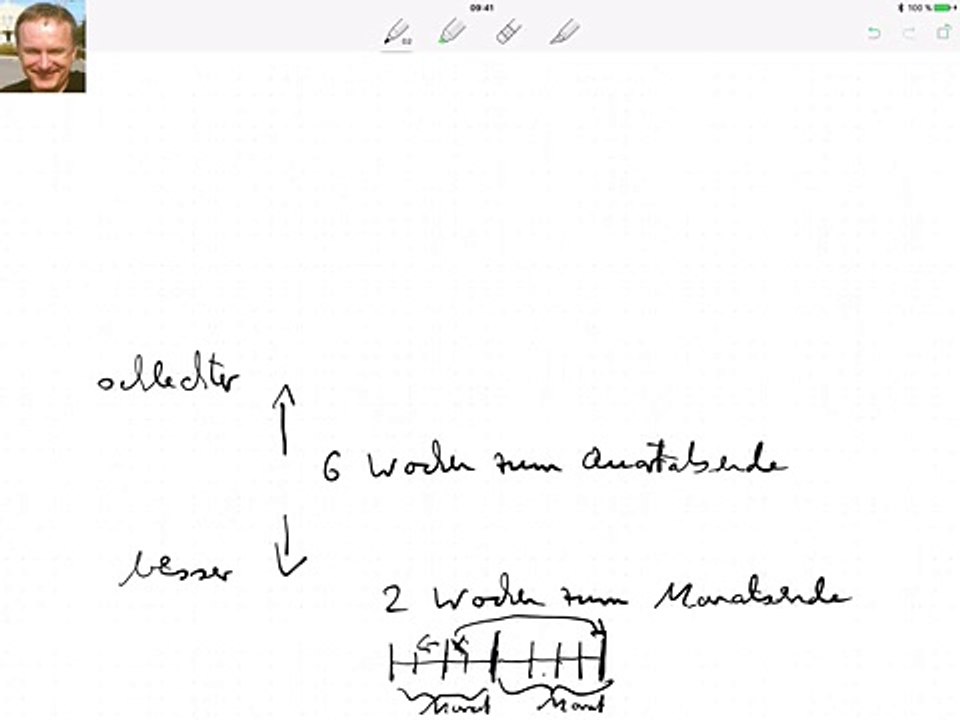 09:41
100 %
02
schlechter
6 Wochen zum Quartalsende
besser
2 Wochen zum Monatsende
Monat Monat